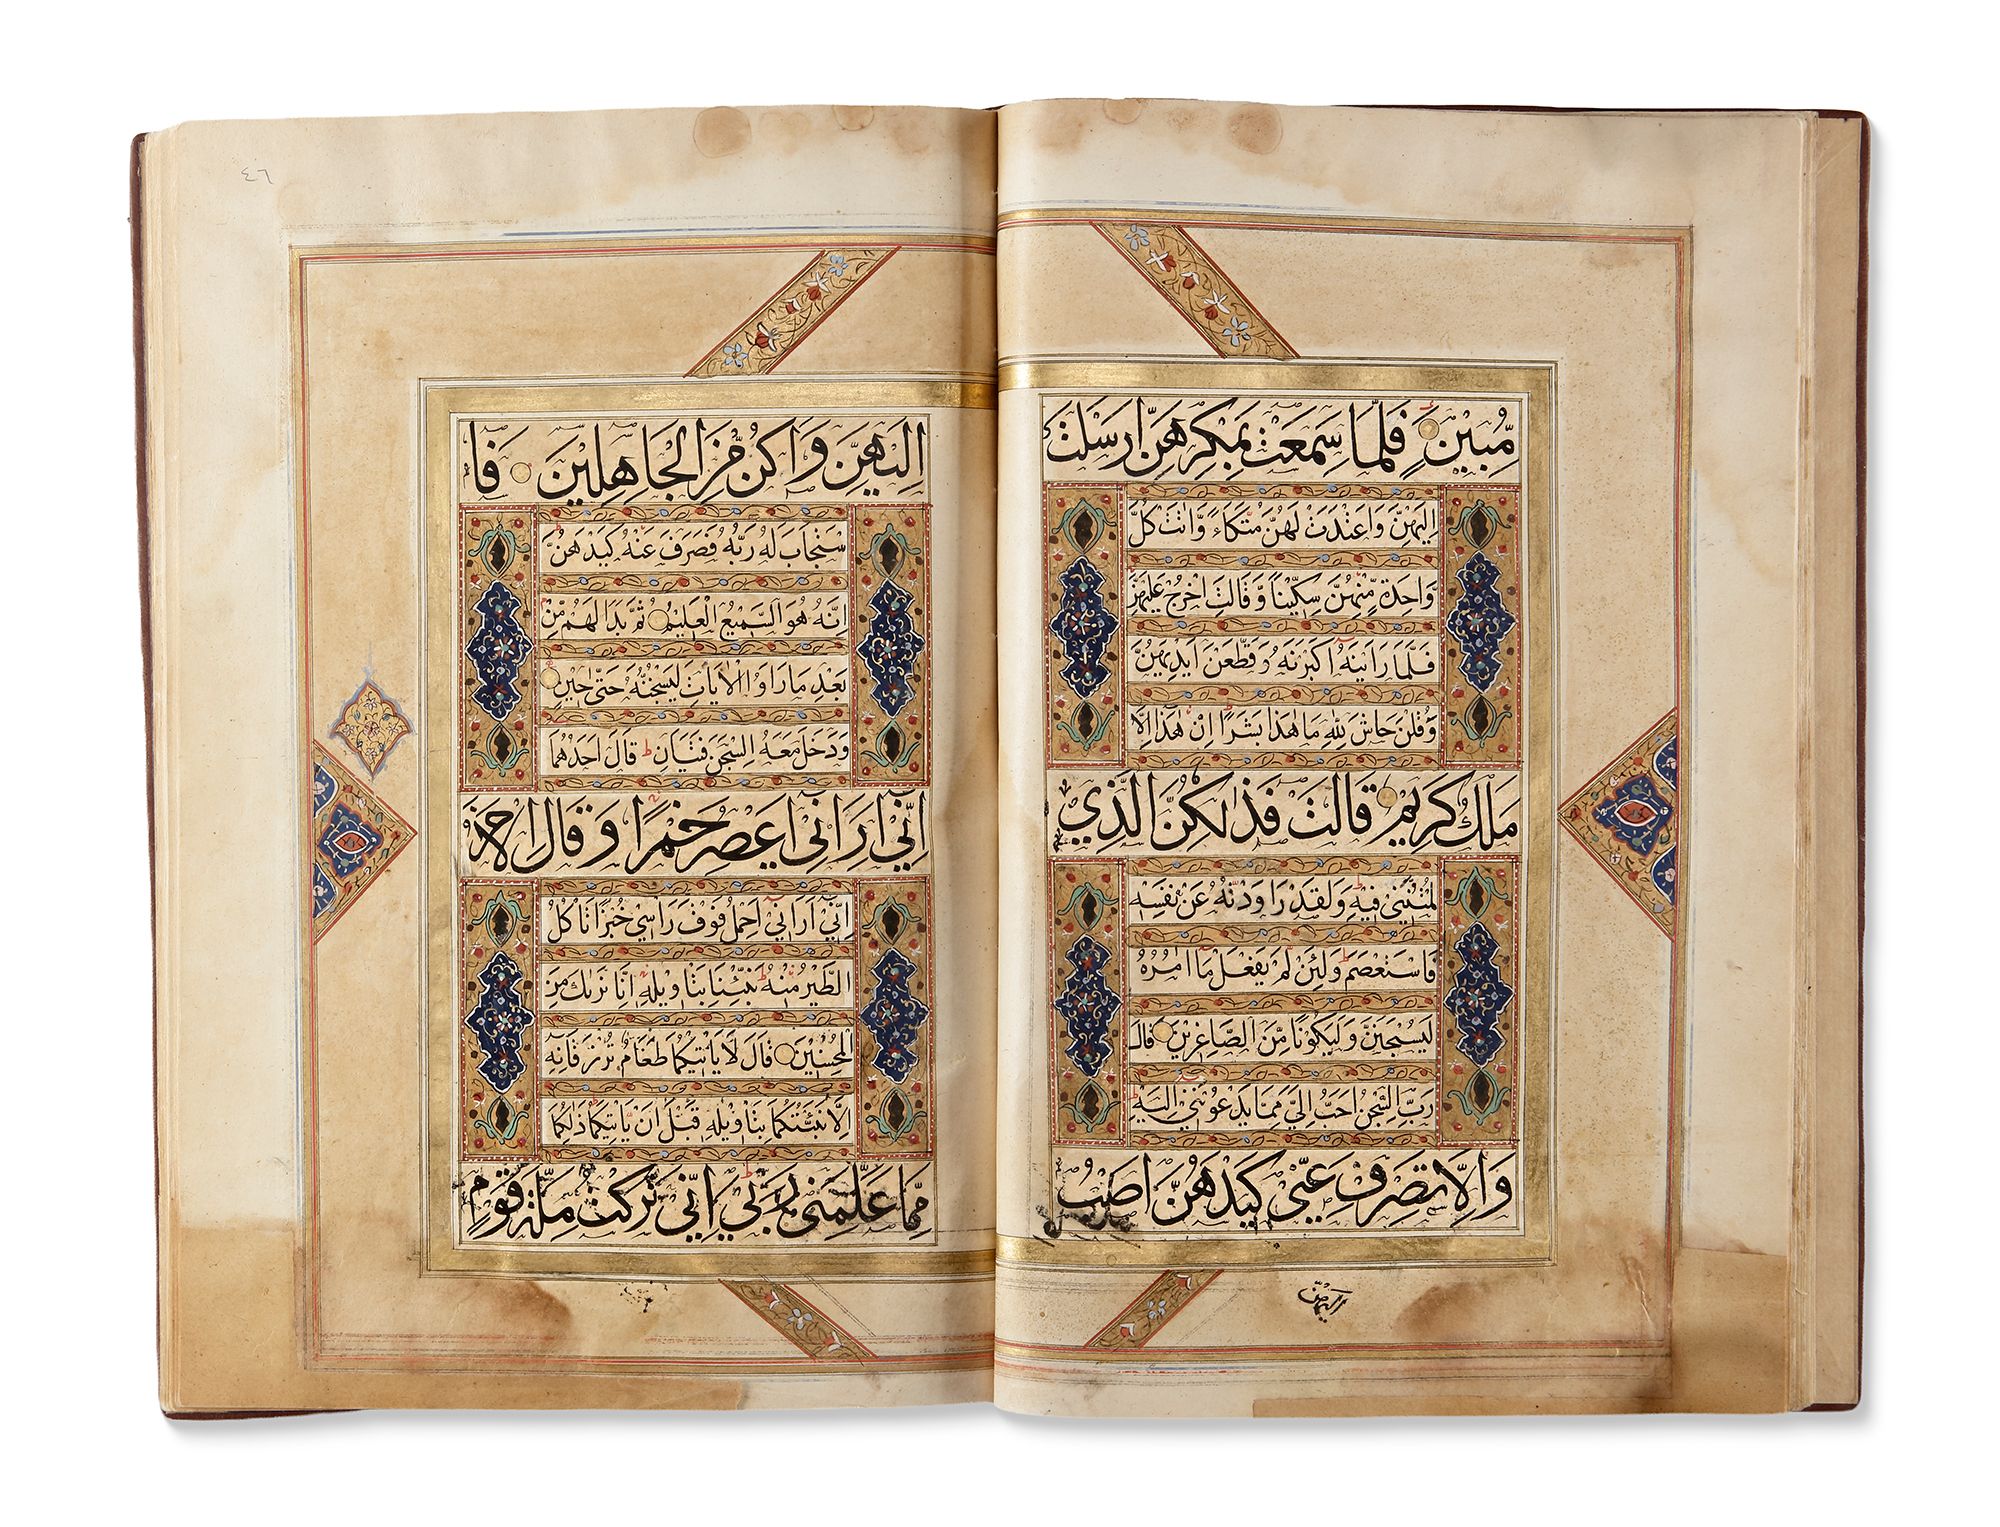 مُّبِينٍ فَلَمَّا سَمِعَتْ بِمَكْرِهِنَّ اَرْسَلَتْ
اِلَيْهِنَّ وَاَعْتَدَتْ لَهُنَّ مُتَّكَاً وَّاٰتَتْ كُلَّ
وَاحِدَةٍ مِّنْهُنَّ سِكِّينًا وَّقَالَتِ اخْرُجْ عَلَيْهِنَّ
فَلَمَّا رَاَيْنَهُ اَكْبَرْنَهُ وَقَطَّعْنَ اَيْدِيَهُنَّ
وَقُلْنَ حَاشَ لِلّٰهِ مَا هٰذَا بَشَرًا اِنْ هٰذَا اِلَّا
مَلَكٌ كَرِيمٌ قَالَتْ فَذٰلِكُنَّ الَّذِي
لُمْتُنَّنِي فِيهِ وَلَقَدْ رَاوَدْتُهُ عَنْ نَفْسِهِ
فَاسْتَعْصَمَ وَلَئِنْ لَمْ يَفْعَلْ مَا اٰمُرُهُ
لَيُسْجَنَنَّ وَلَيَكُونًا مِّنَ الصَّاغِرِينَ قَالَ
رَبِّ السِّجْنُ اَحَبُّ اِلَيَّ مِمَّا يَدْعُونَنِي اِلَيْهِ
وَاِلَّا تَصْرِفْ عَنِّي كَيْدَهُنَّ اَصْبُ
اليهن
٤٦
اِلَيْهِنَّ وَاَكُنْ مِّنَ الْجَاهِلِينَ فَا
سْتَجَابَ لَهُ رَبُّهُ فَصَرَفَ عَنْهُ كَيْدَهُنَّ
اِنَّهُ هُوَ السَّمِيعُ الْعَلِيمُ ثُمَّ بَدَا لَهُمْ مِّنْ
بَعْدِ مَا رَاَوُا الْاٰيَاتِ لَيَسْجُنُنَّهُ حَتّٰى حِينٍ
وَدَخَلَ مَعَهُ السِّجْنَ فَتَيَانِ ط قَالَ اَحَدُهُمَا
اِنِّي اَرَانِي اَعْصِرُ خَمْرًا وَقَالَ الْاٰخَرُ
اِنِّي اَرَانِي اَحْمِلُ فَوْقَ رَاْسِي خُبْزًا تَاْكُلُ
الطَّيْرُ مِنْهُ ط نَبِّئْنَا بِتَاْوِيلِهِ اِنَّا نَرٰىكَ مِنَ
الْمُحْسِنِينَ قَالَ لَا يَاْتِيكُمَا طَعَامٌ تُرْزَقَانِهِ
اِلَّا نَبَّاْتُكُمَا بِتَاْوِيلِهِ قَبْلَ اَنْ يَاْتِيَكُمَا ذٰلِكُمَا
مِمَّا عَلَّمَنِي رَبِّي اِنِّي تَرَكْتُ مِلَّةَ قَوْمٍ